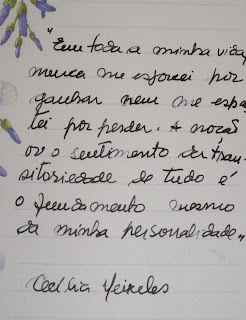 "Em toda a minha vida,
nunca me esforcei por
ganhar nem me espan
tei por perder. A noção
ou o sentimento da tran-
sitoriedade de tudo é
o fundamento mesmo
da minha personalidade."
Cecília Meireles